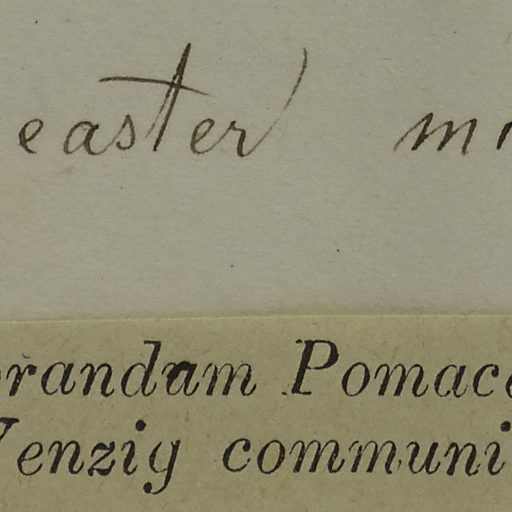 easter) m
orandum Pomac
Wenzig communi